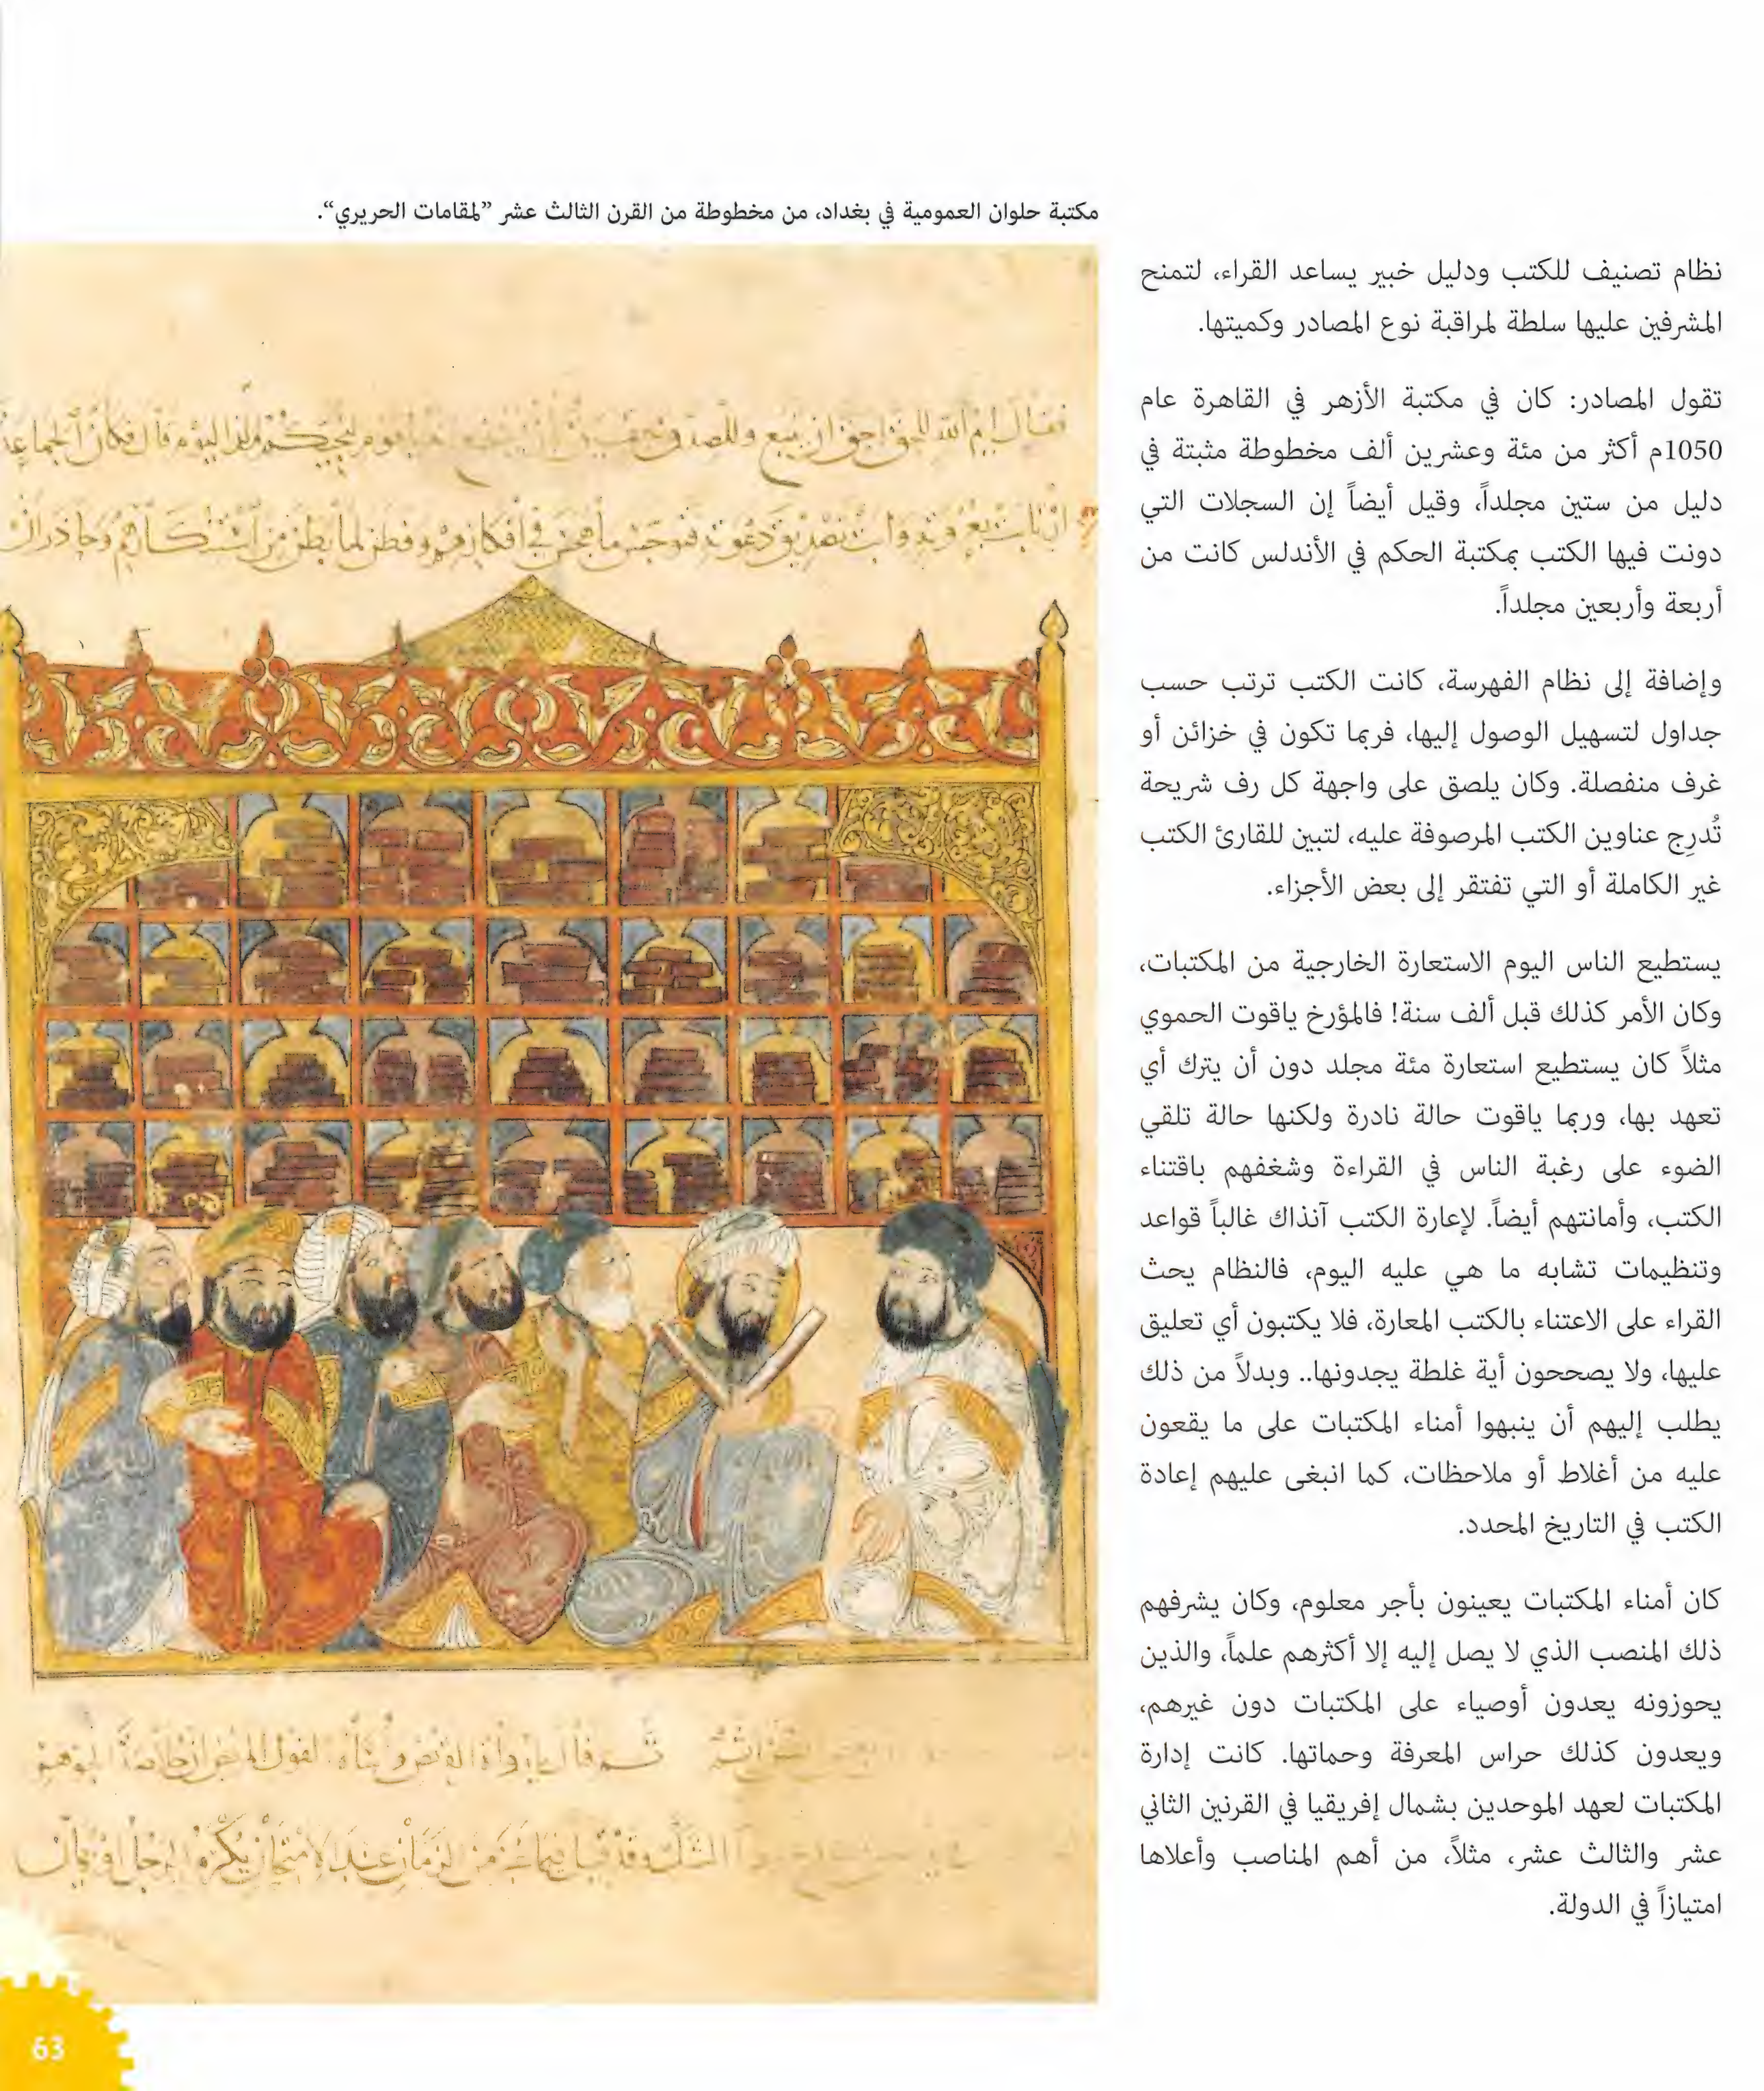 مكتبة حلوان العمومية في بغداد، من مخطوطة من القرن الثالث عشر ”لمقامات الحريري“.
نظام تصنيف للكتب ودليل خبير يساعد القراء، لتمنح
المشرفين عليها سلطة لمراقبة نوع المصادر وكميتها.
تقول المصادر: كان في مكتبة الأزهر في القاهرة عام
1050م أكثر من مئة وعشرين ألف مخطوطة مثبتة في
دليل من ستين مجلداً، وقيل أيضاً إن السجلات التي
دونت فيها الكتب بمكتبة الحكم في الأندلس كانت من
أربعة وأربعين مجلداً.
وإضافة إلى نظام الفهرسة، كانت الكتب ترتب حسب
جداول لتسهيل الوصول إليها، فربما تكون في خزائن أو
غرف منفصلة. وكان يلصق على واجهة كل رف شريحة
تُدرِج عناوين الكتب المرصوفة عليه، لتبين للقارئ الكتب
غير الكاملة أو التي تفتقر إلى بعض الأجزاء.
يستطيع الناس اليوم الاستعارة الخارجية من المكتبات،
وكان الأمر كذلك قبل ألف سنة! فالمؤرخ ياقوت الحموي
مثلاً كان يستطيع استعارة مئة مجلد دون أن يترك أي
تعهد بها، وربما ياقوت حالة نادرة ولكنها حالة تلقي
الضوء على رغبة الناس في القراءة وشغفهم باقتناء
الكتب، وأمانتهم أيضاً. لإعارة الكتب آنذاك غالباً قواعد
وتنظيمات تشابه ما هي عليه اليوم، فالنظام يحث
القراء على الاعتناء بالكتب المعارة، فلا يكتبون أي تعليق
عليها، ولا يصححون أية غلطة يجدونها.. وبدلاً من ذلك
يطلب إليهم أن ينبهوا أمناء المكتبات على ما يقعون
عليه من أغلاط أو ملاحظات، كما انبغى عليهم إعادة
الكتب في التاريخ المحدد.
كان أمناء المكتبات يعينون بأجر معلوم، وكان يشرفهم
ذلك المنصب الذي لا يصل إليه إلا أكثرهم علماً، والذين
يحوزونه يعدون أوصياء على المكتبات دون غيرهم،
ويعدون كذلك حراس المعرفة وحماتها. كانت إدارة
المكتبات لعهد الموحدين بشمال إفريقيا في القرنين الثاني
عشر والثالث عشر، مثلاً، من أهم المناصب وأعلاها
امتيازاً في الدولة.
63